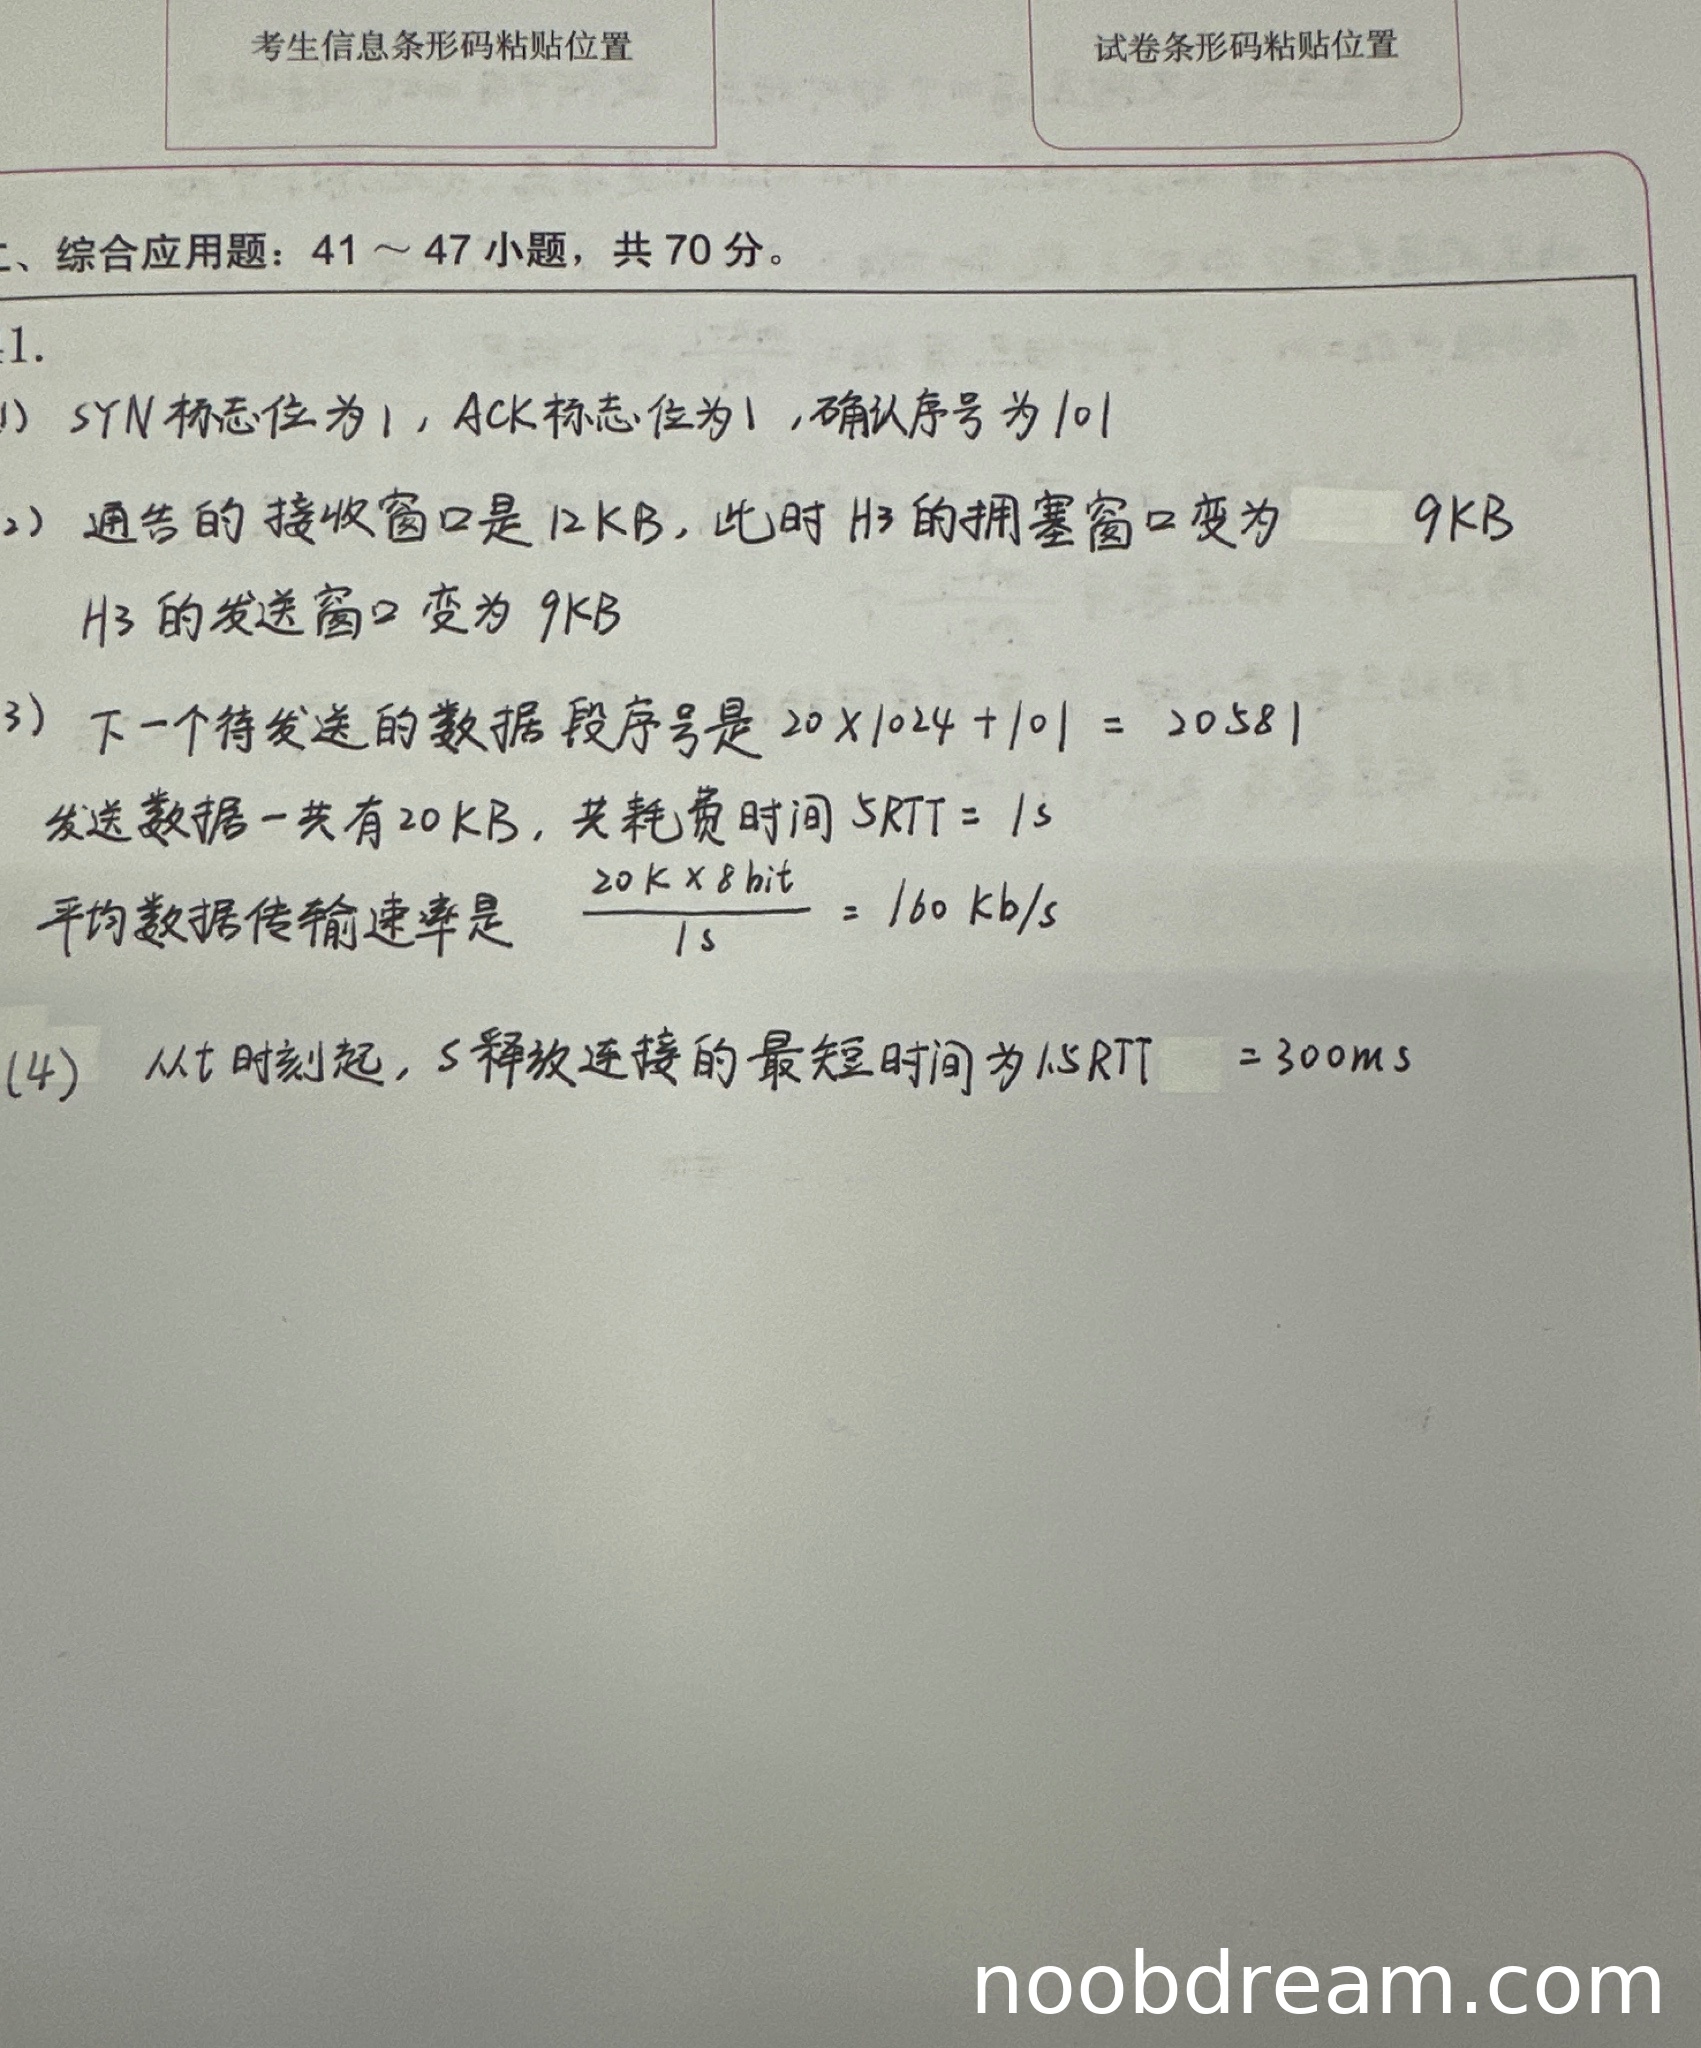 考生信息条形码粘贴位置
试卷条形码粘贴位置
二、综合应用题：41 ～ 47 小题，共 70 分。
41.
1) SYN标志位为1，ACK标志位为1，确认序号为101
2) 通告的接收窗口是12KB，此时H3的拥塞窗口变为 9KB
H3的发送窗口变为9KB
3) 下一个待发送的数据段序号是 20×1024+101 = 20581
发送数据一共有20KB，共耗费时间5RTT = 1s
平均数据传输速率是 20K×8bit / 1s = 160 Kb/s
(4) 从t时刻起，S释放连接的最短时间为1.5RTT =300ms
noobdream.com